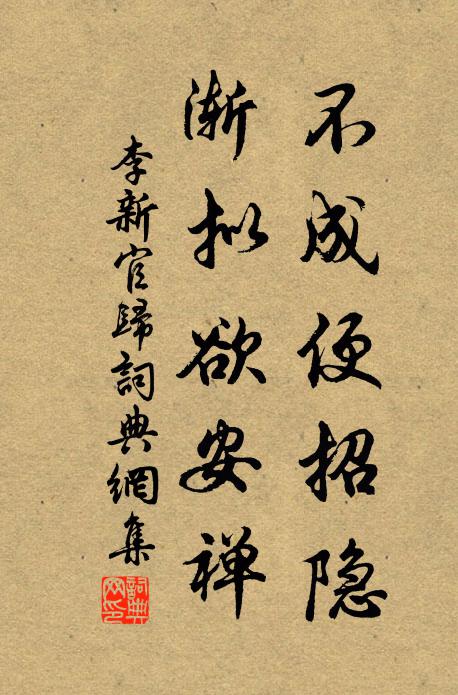 不成便招隐
渐拟欲安禅
李新官歸詞典網集
詞典网印